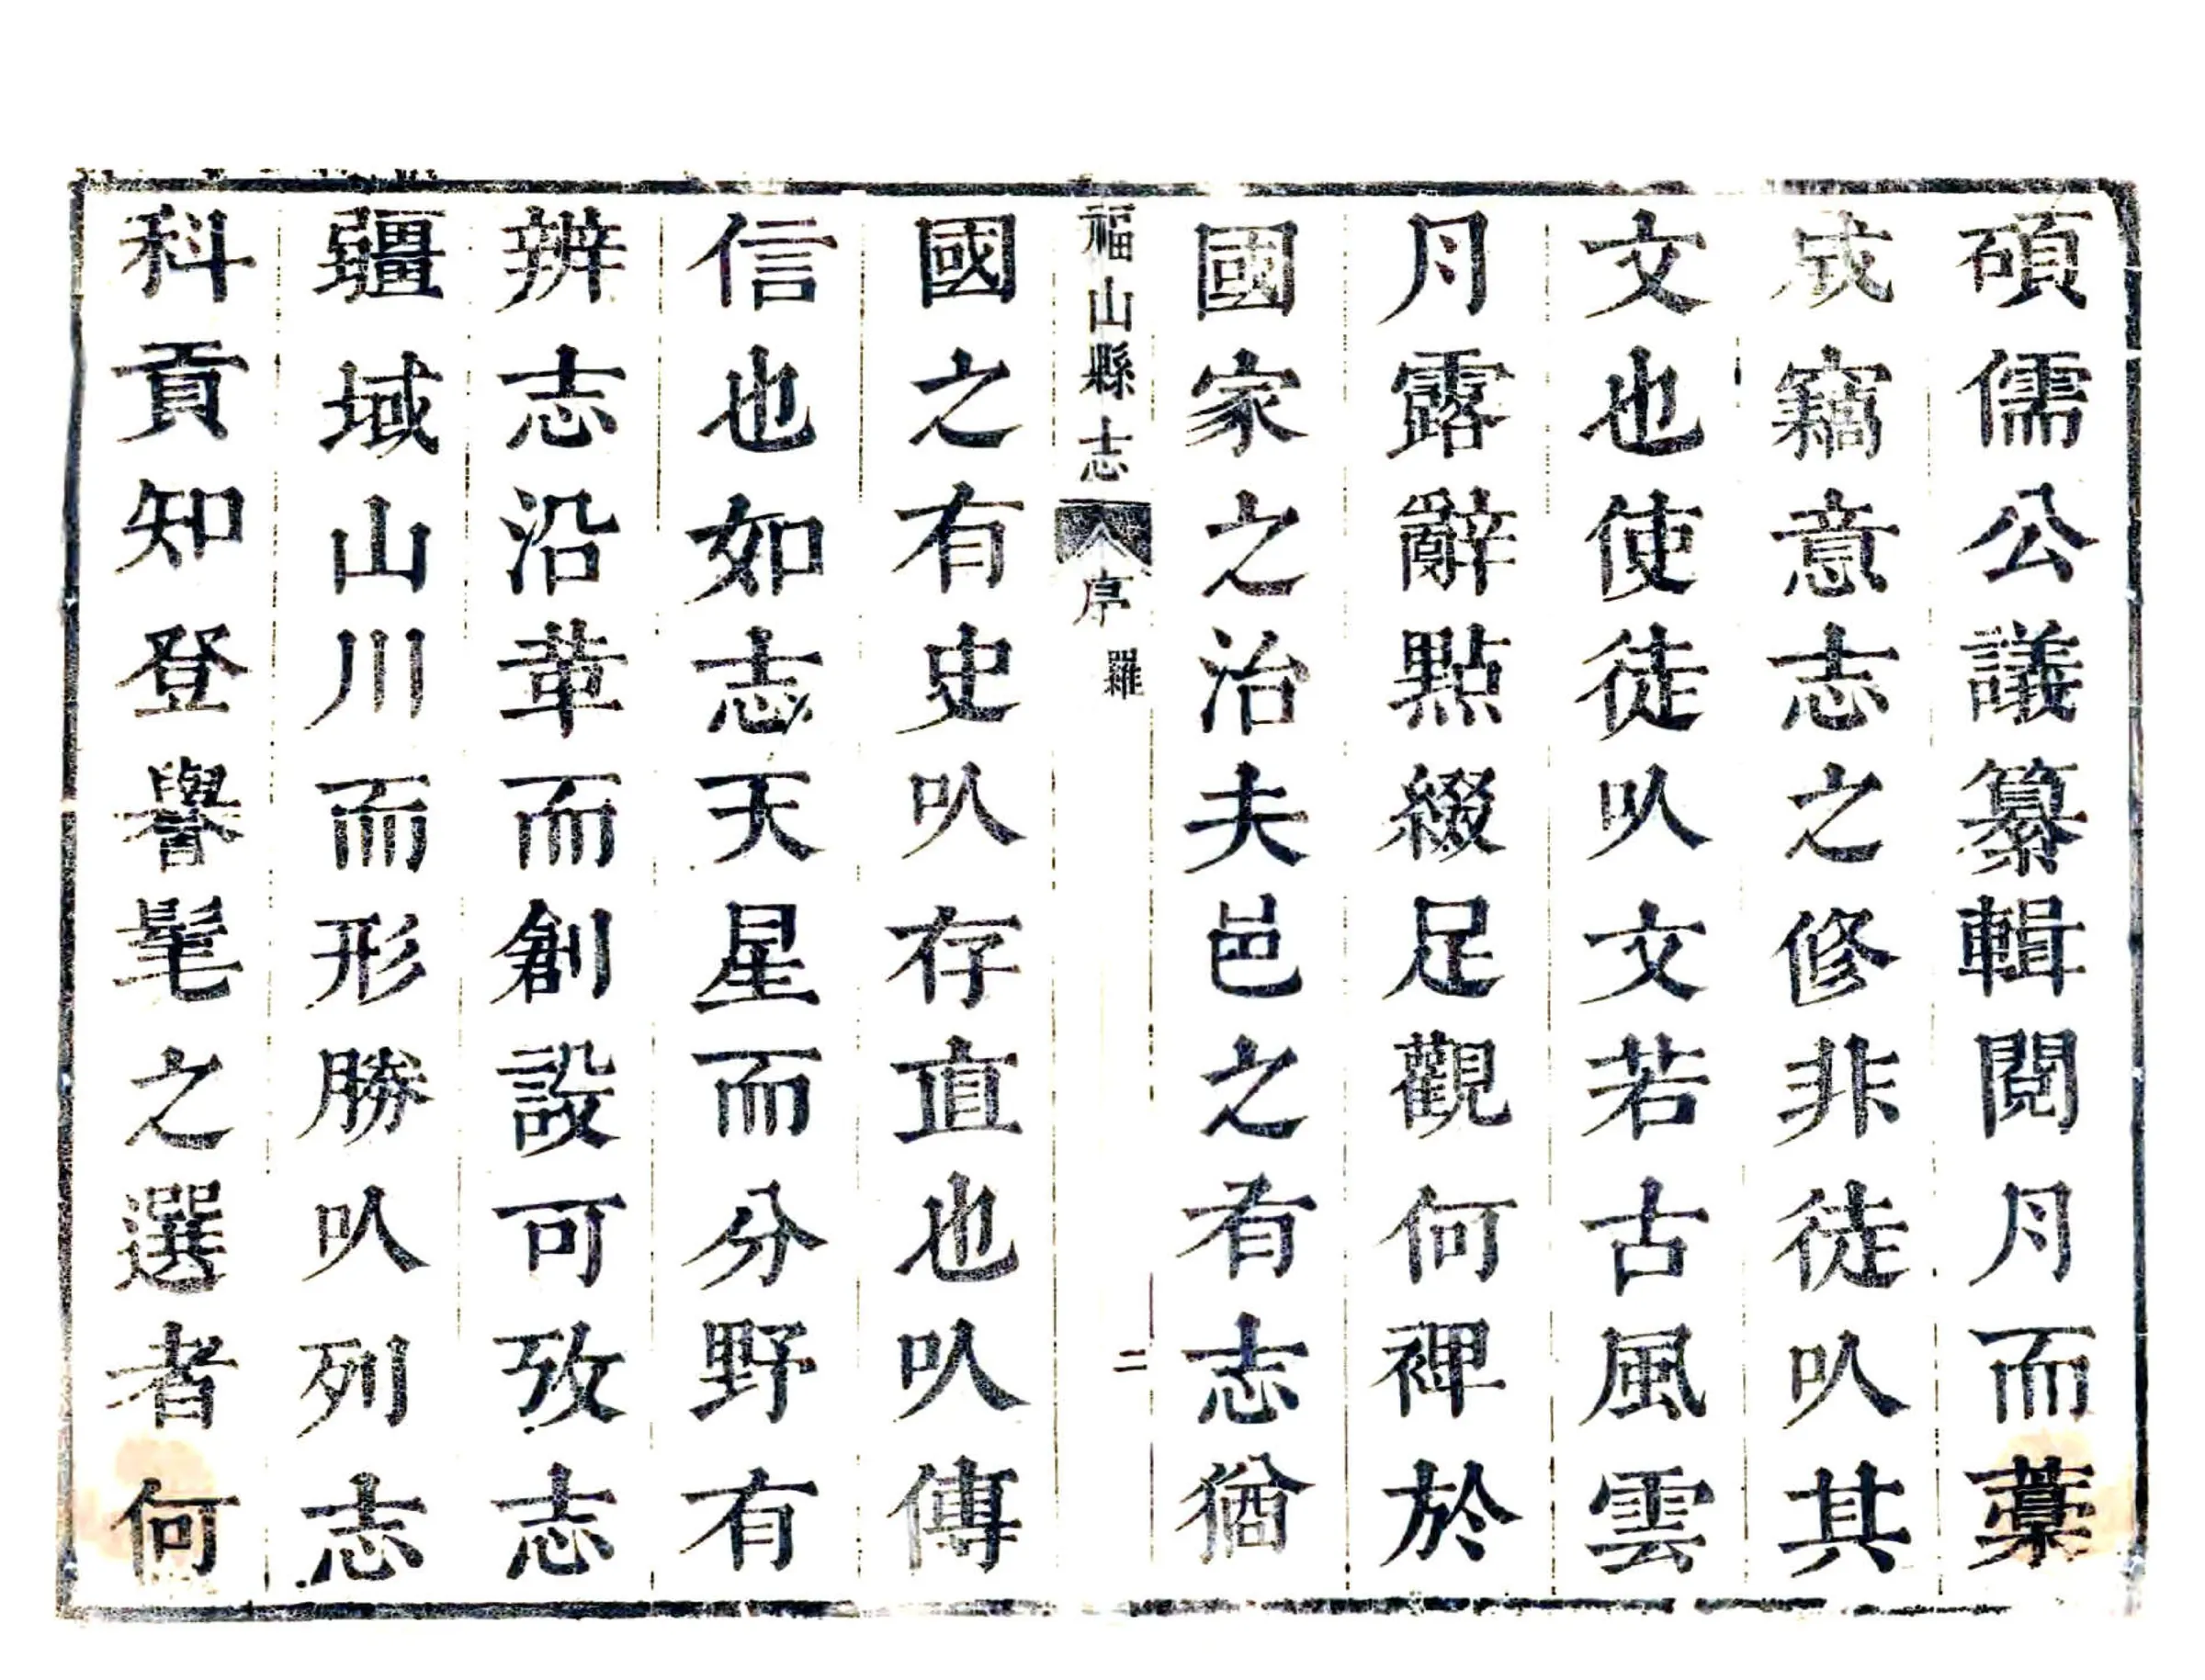 碩儒公議纂輯閱月而藁
成竊意志之修非徒㕥其
文也使徒㕥文若古風雲
月露辭點綴足觀何裨於
國家之治夫邑之有志猶
福山縣志 序 羅 二
國之有史㕥存直也㕥傳
信也如志天星而分野有
辨志沿革而創設可攷志
疆域山川而形勝㕥列志
科貢知登譽髦之選者何